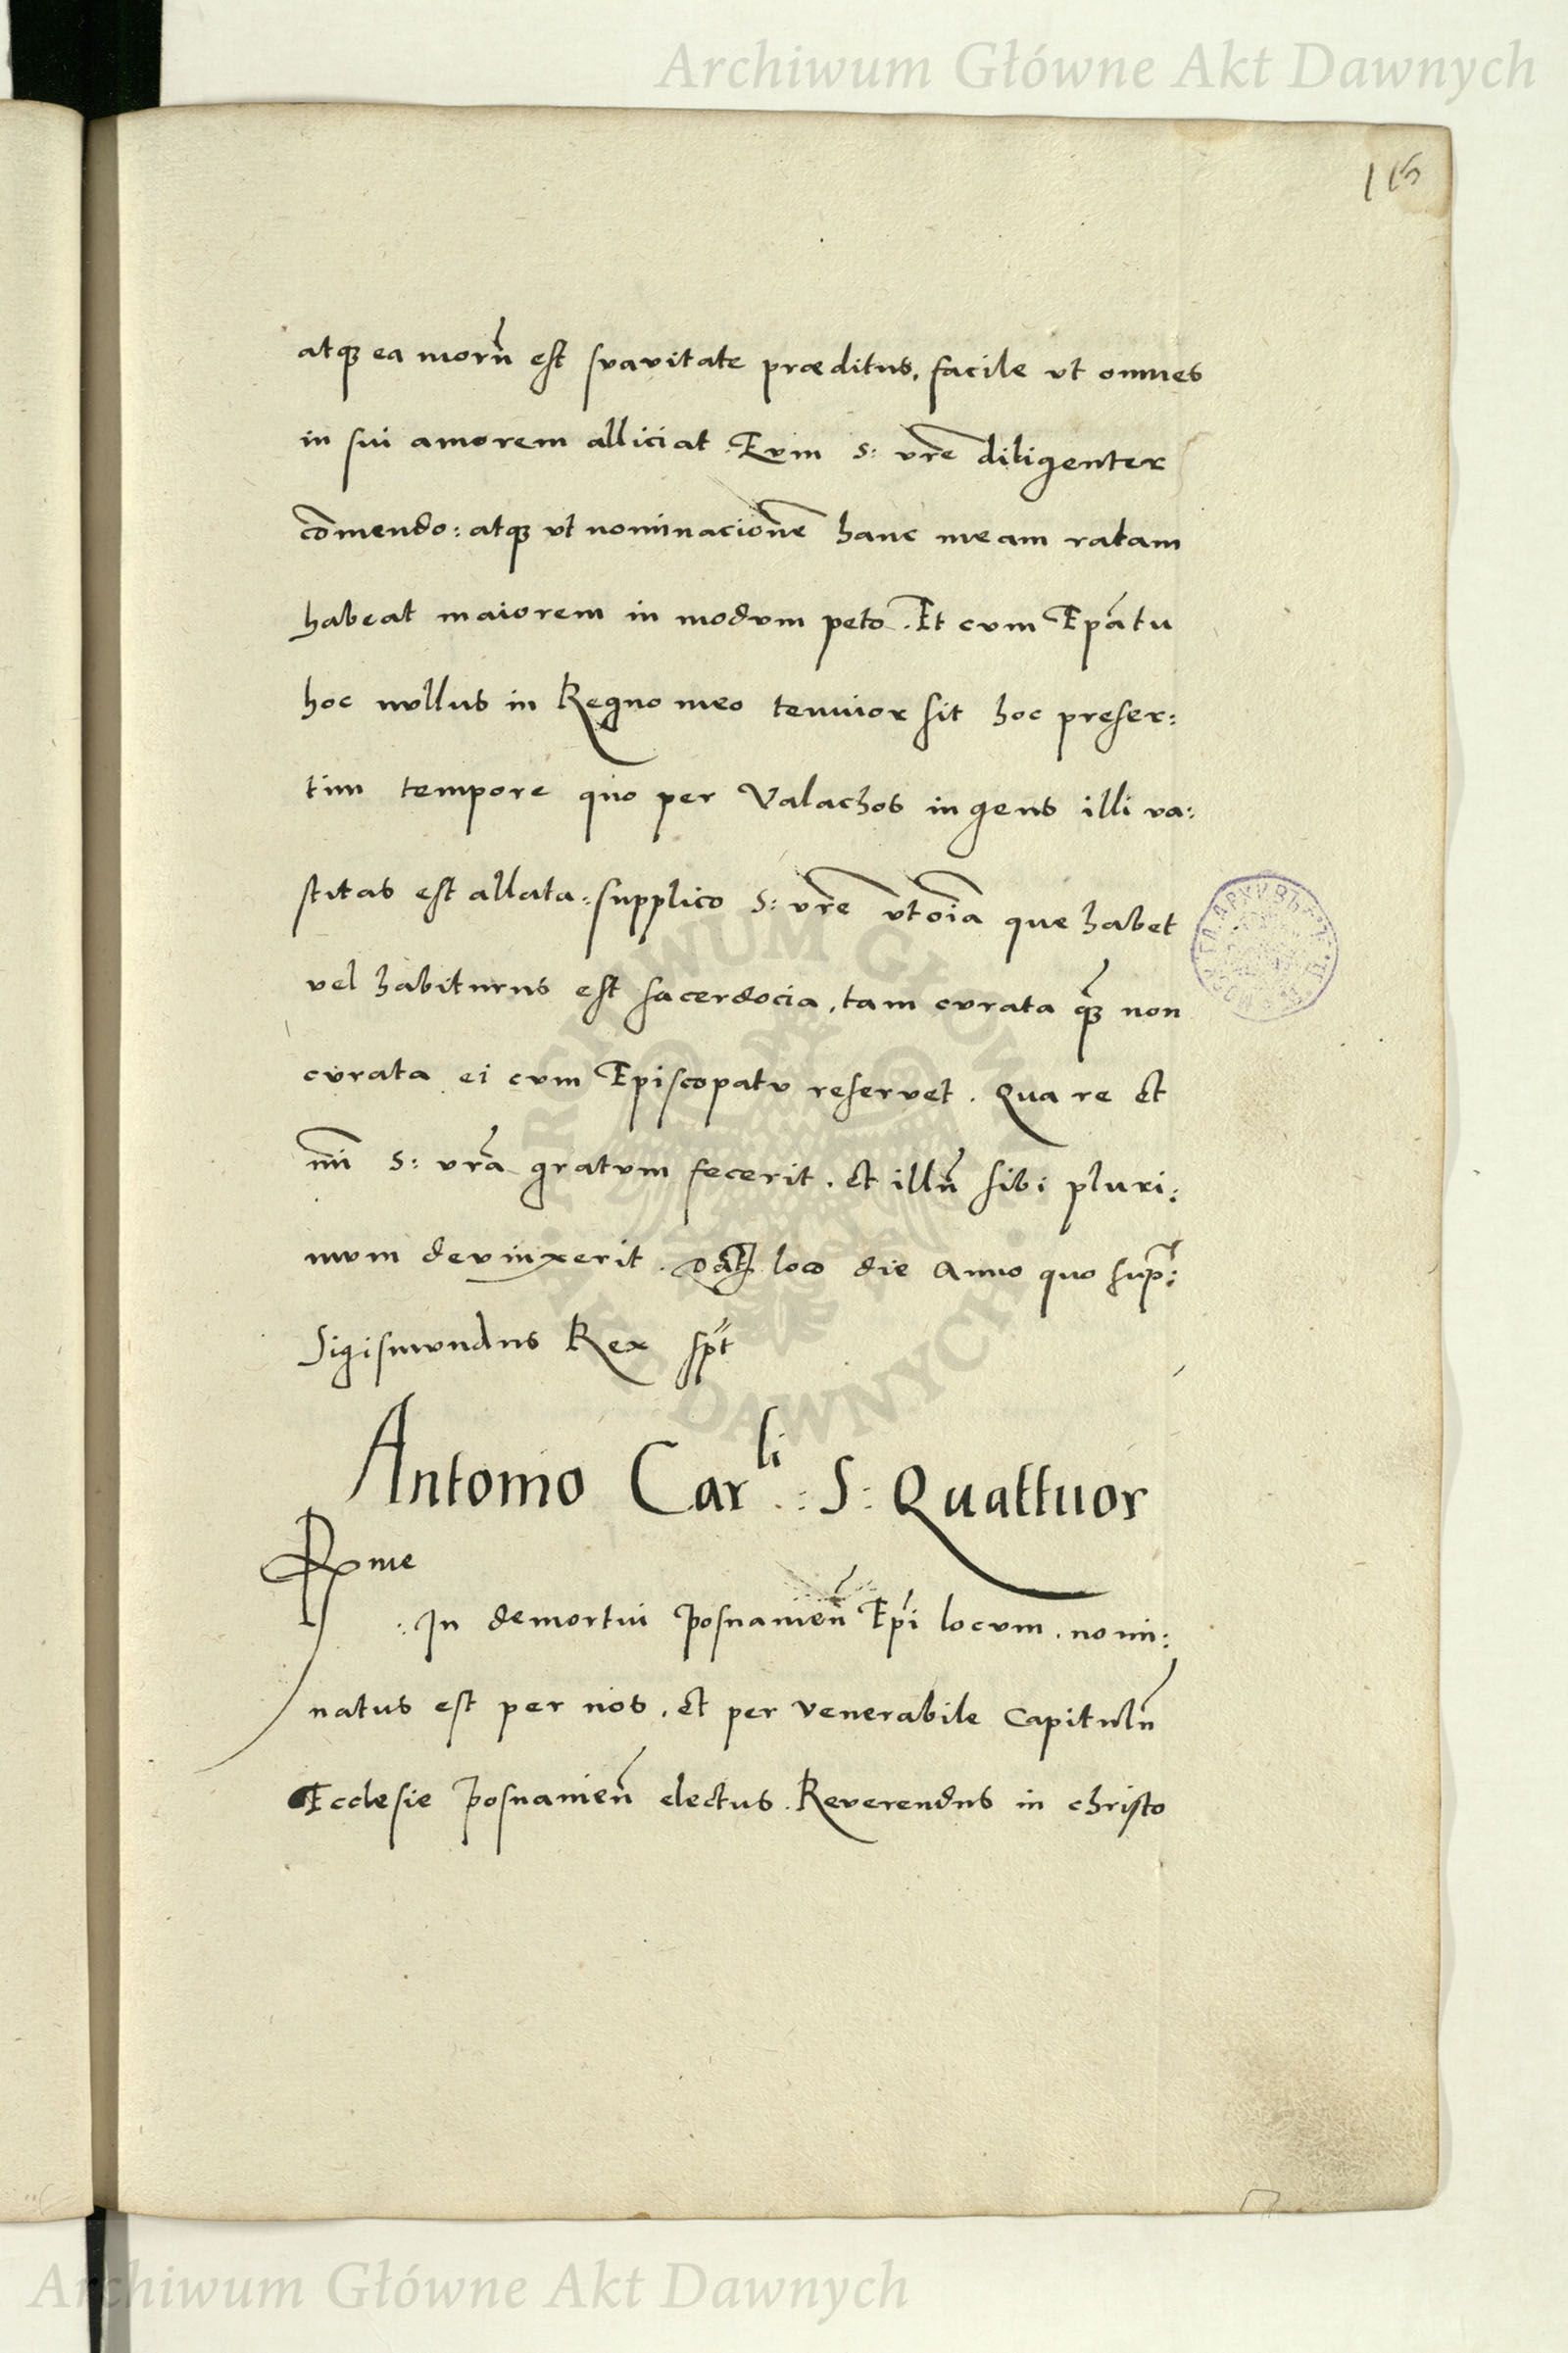 Archiwum Główne Akt Dawnych
115
atqꝫ ea morū est suavitate præditus, facile vt omnes
in sui amorem alliciat. Evm S: vrē diligenter
cōmendo: atqꝫ vt nominacionē hanc meam ratam
habeat maiorem in modvm peto. Et cvm Ep̄atu
hoc nvllus in Regno meo tenuior sit hoc preser:
tim tempore quo per Valachos ingens illi va:
stitas est allata: supplico S: vrē vt oīa que habet
vel habiturus est sacerdocia, tam cvrata qꝫ non
cvrata ei cvm Episcopatv reservet. Qua re et
mi S: vrā gratvm fecerit. et illū sibi pluri:
mvm devinxerit. Dat loco die Anno quo sup̄:
Sigismvndus Rex spt
ARCHIWUM GŁÓWNE AKT DAWNYCH
Antonio Car li : S: Quattuor
Rme
: In demortui Posnanień Ep̄i locvm. nomi:
natus est per nos, et per venerabile Capitulū
Ecclesie Posnanień electus. Reverendus in christo
Archiwum Główne Akt Dawnych